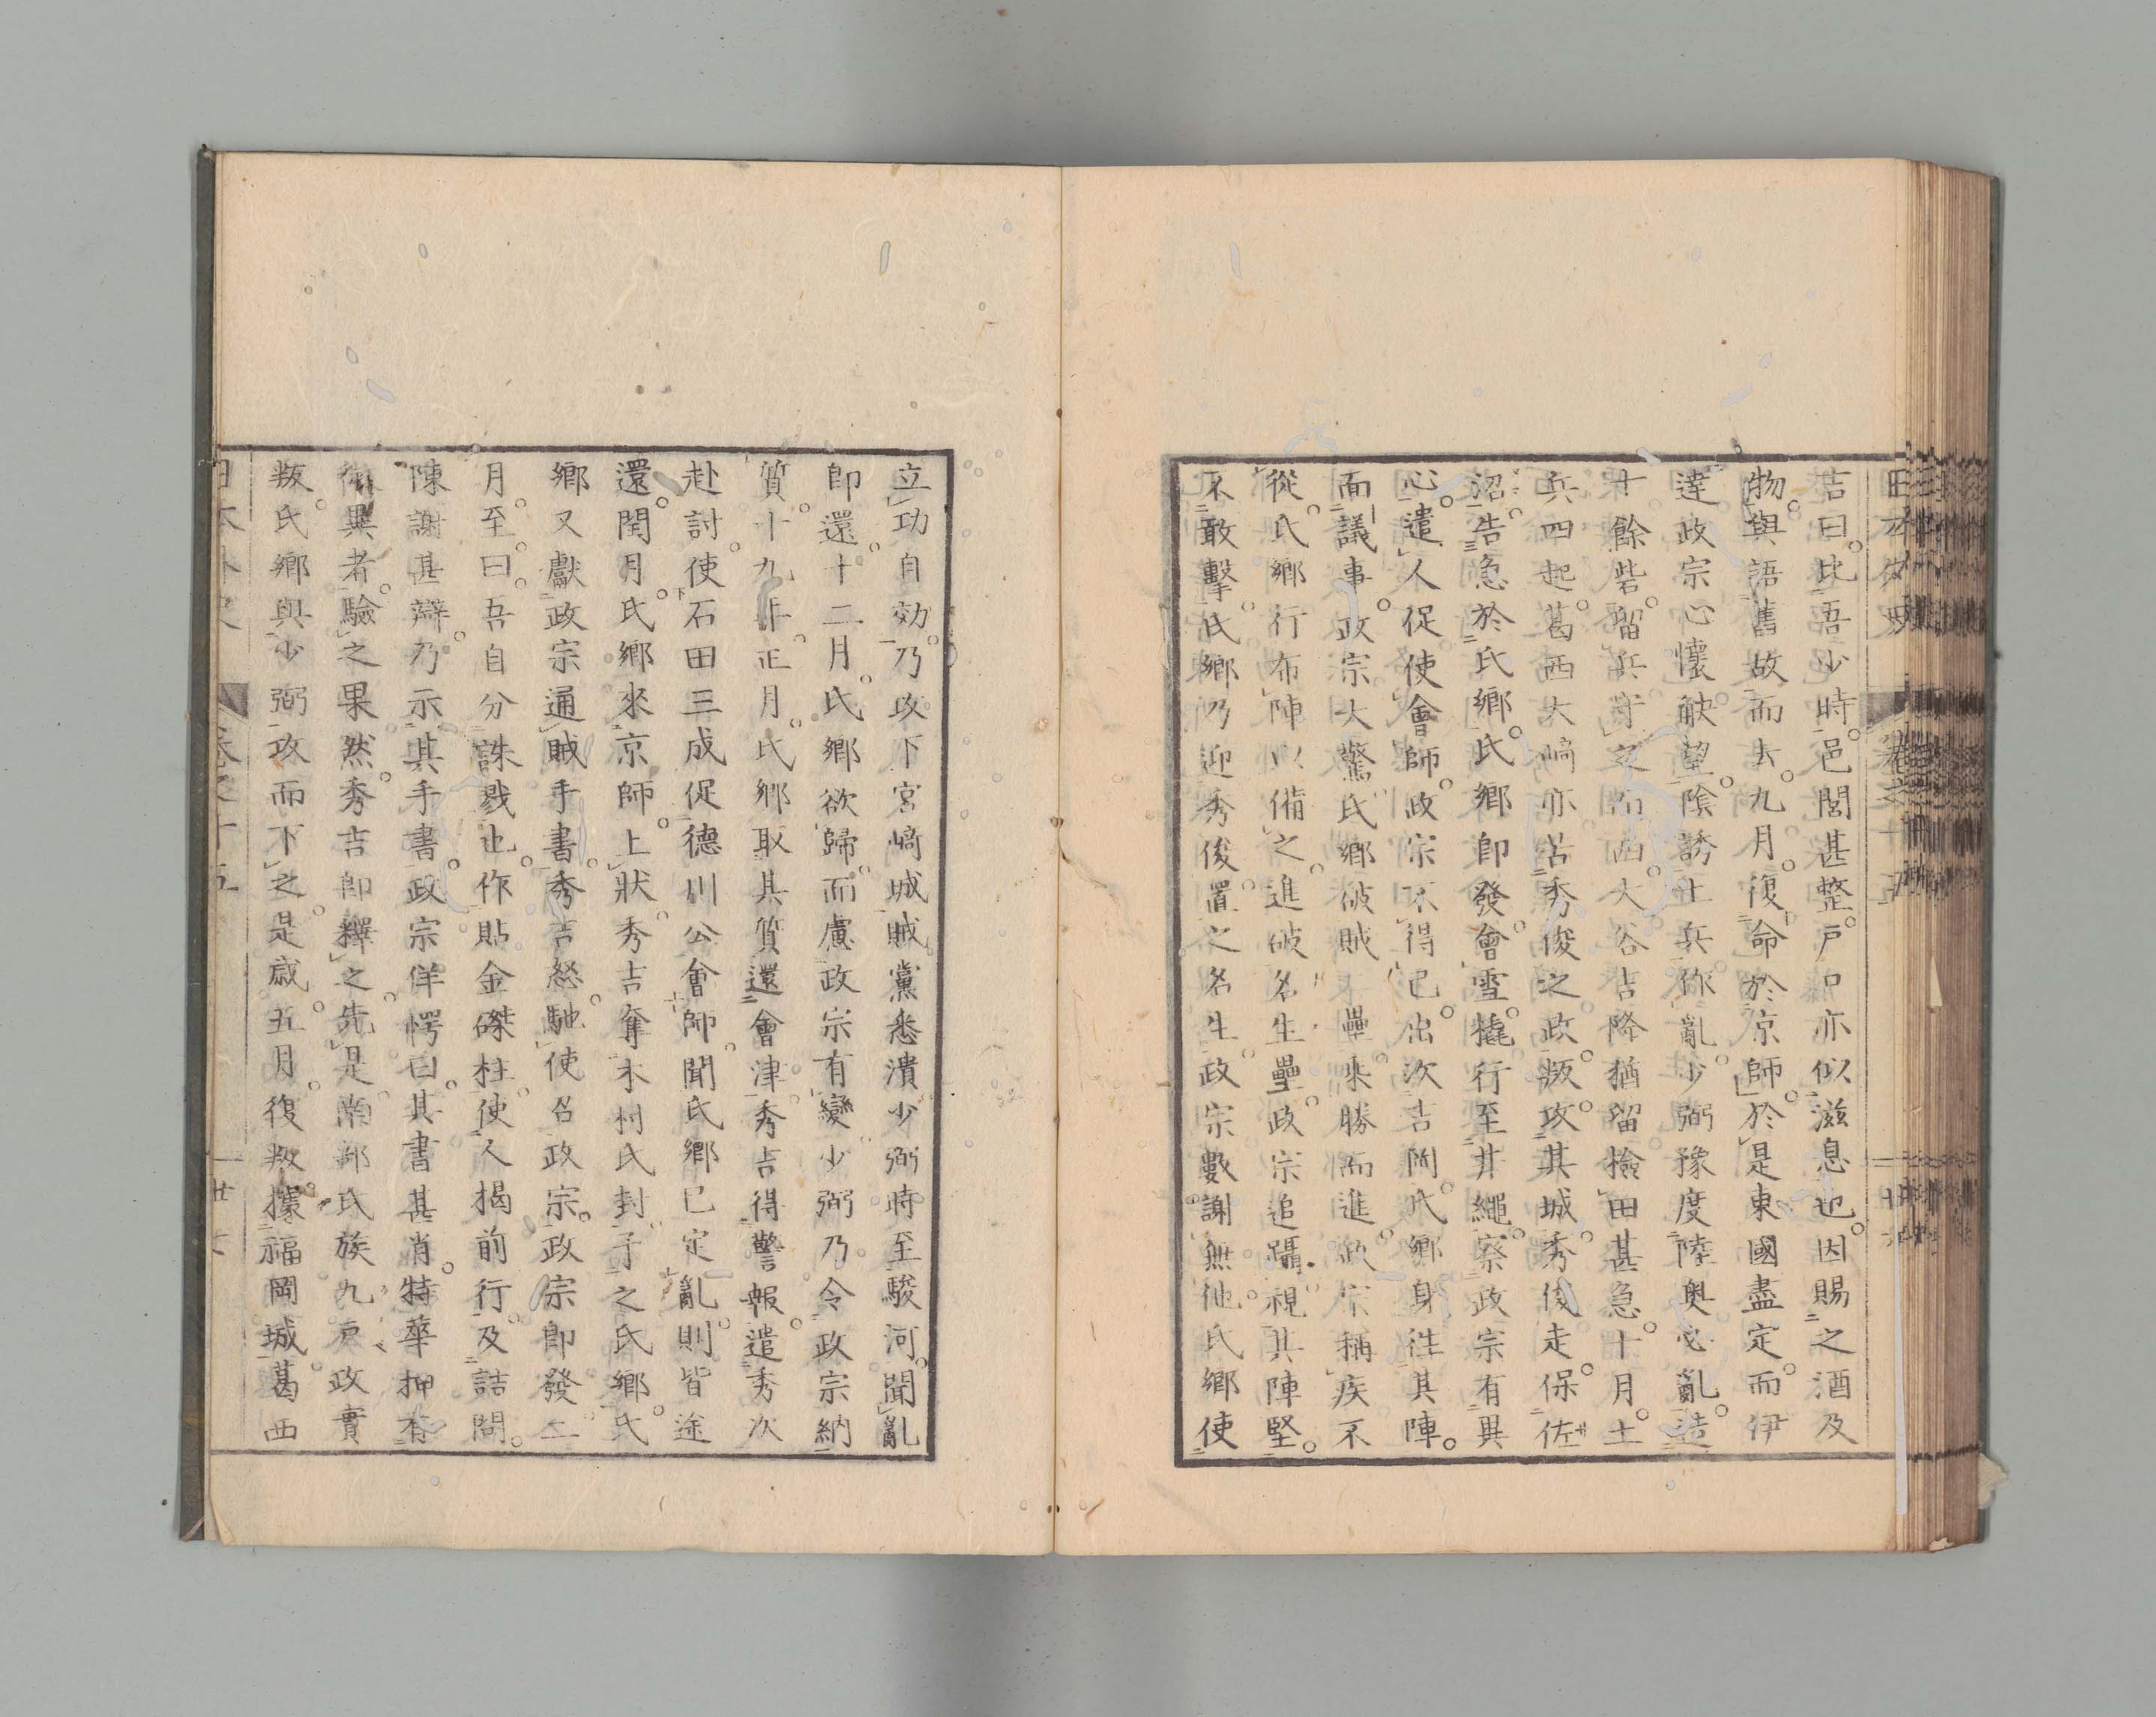 吉曰。此吾少時。邑閭甚整。戶口亦似滋息也。因賜之酒及
物。與語舊故而去。九月。復命於京師。於是東國盡定。而伊
達政宗心懷觖望。陰誘土兵作亂。少弼豫度陸奧必亂。造
十餘砦。留兵守之而西。大谷吉隆猶留撿田甚急。十月。土
兵四起。葛西大崎亦苦秀俊之政。叛攻其城。秀俊走保佐
沼。告急於氏鄉。氏鄉即發會雪。撬行至井繩。察政宗有異
心。遣人促使會師。政宗不得已。出次吉岡。氏鄉身往其陣。
面議事。政宗大驚。氏鄉破賊 壘。乘勝而進。政宗稱疾不
從。氏鄉行布陣以備之。進破名生壘。政宗追躡。視其陣堅。
不敢擊。氏鄉乃迎秀俊。置之名生。政宗數謝無他。氏鄉使
立功自効。乃攻下宮崎城。賊黨悉潰。少弼時至駿河。聞亂
即還。十二月。氏鄉欲歸。而慮政宗有變。少弼乃令政宗納
質。十九年正月。氏鄉取其質。還會津。秀吉得警報。遣秀次
赴討。使石田三成促德川公會師。聞氏鄉已定亂。則皆途
還。閏月。氏鄉來京師。上狀。秀吉奪木村氏封。予之氏鄉。氏
鄉又獻政宗通賊手書。秀吉怒。馳使召政宗。政宗即發。二
月。至曰。吾自分誅戮也。作貼金磔柱。使人揭前行。及詰問。
陳謝甚辯。乃示其手書。政宗佯愕曰。其書甚肖。特華押有
微異者。驗之果然。秀吉即釋之。先是南部氏族九戶政實
叛。氏鄉與少弼攻而下之。是歲五月。復叛。據福岡城。葛西